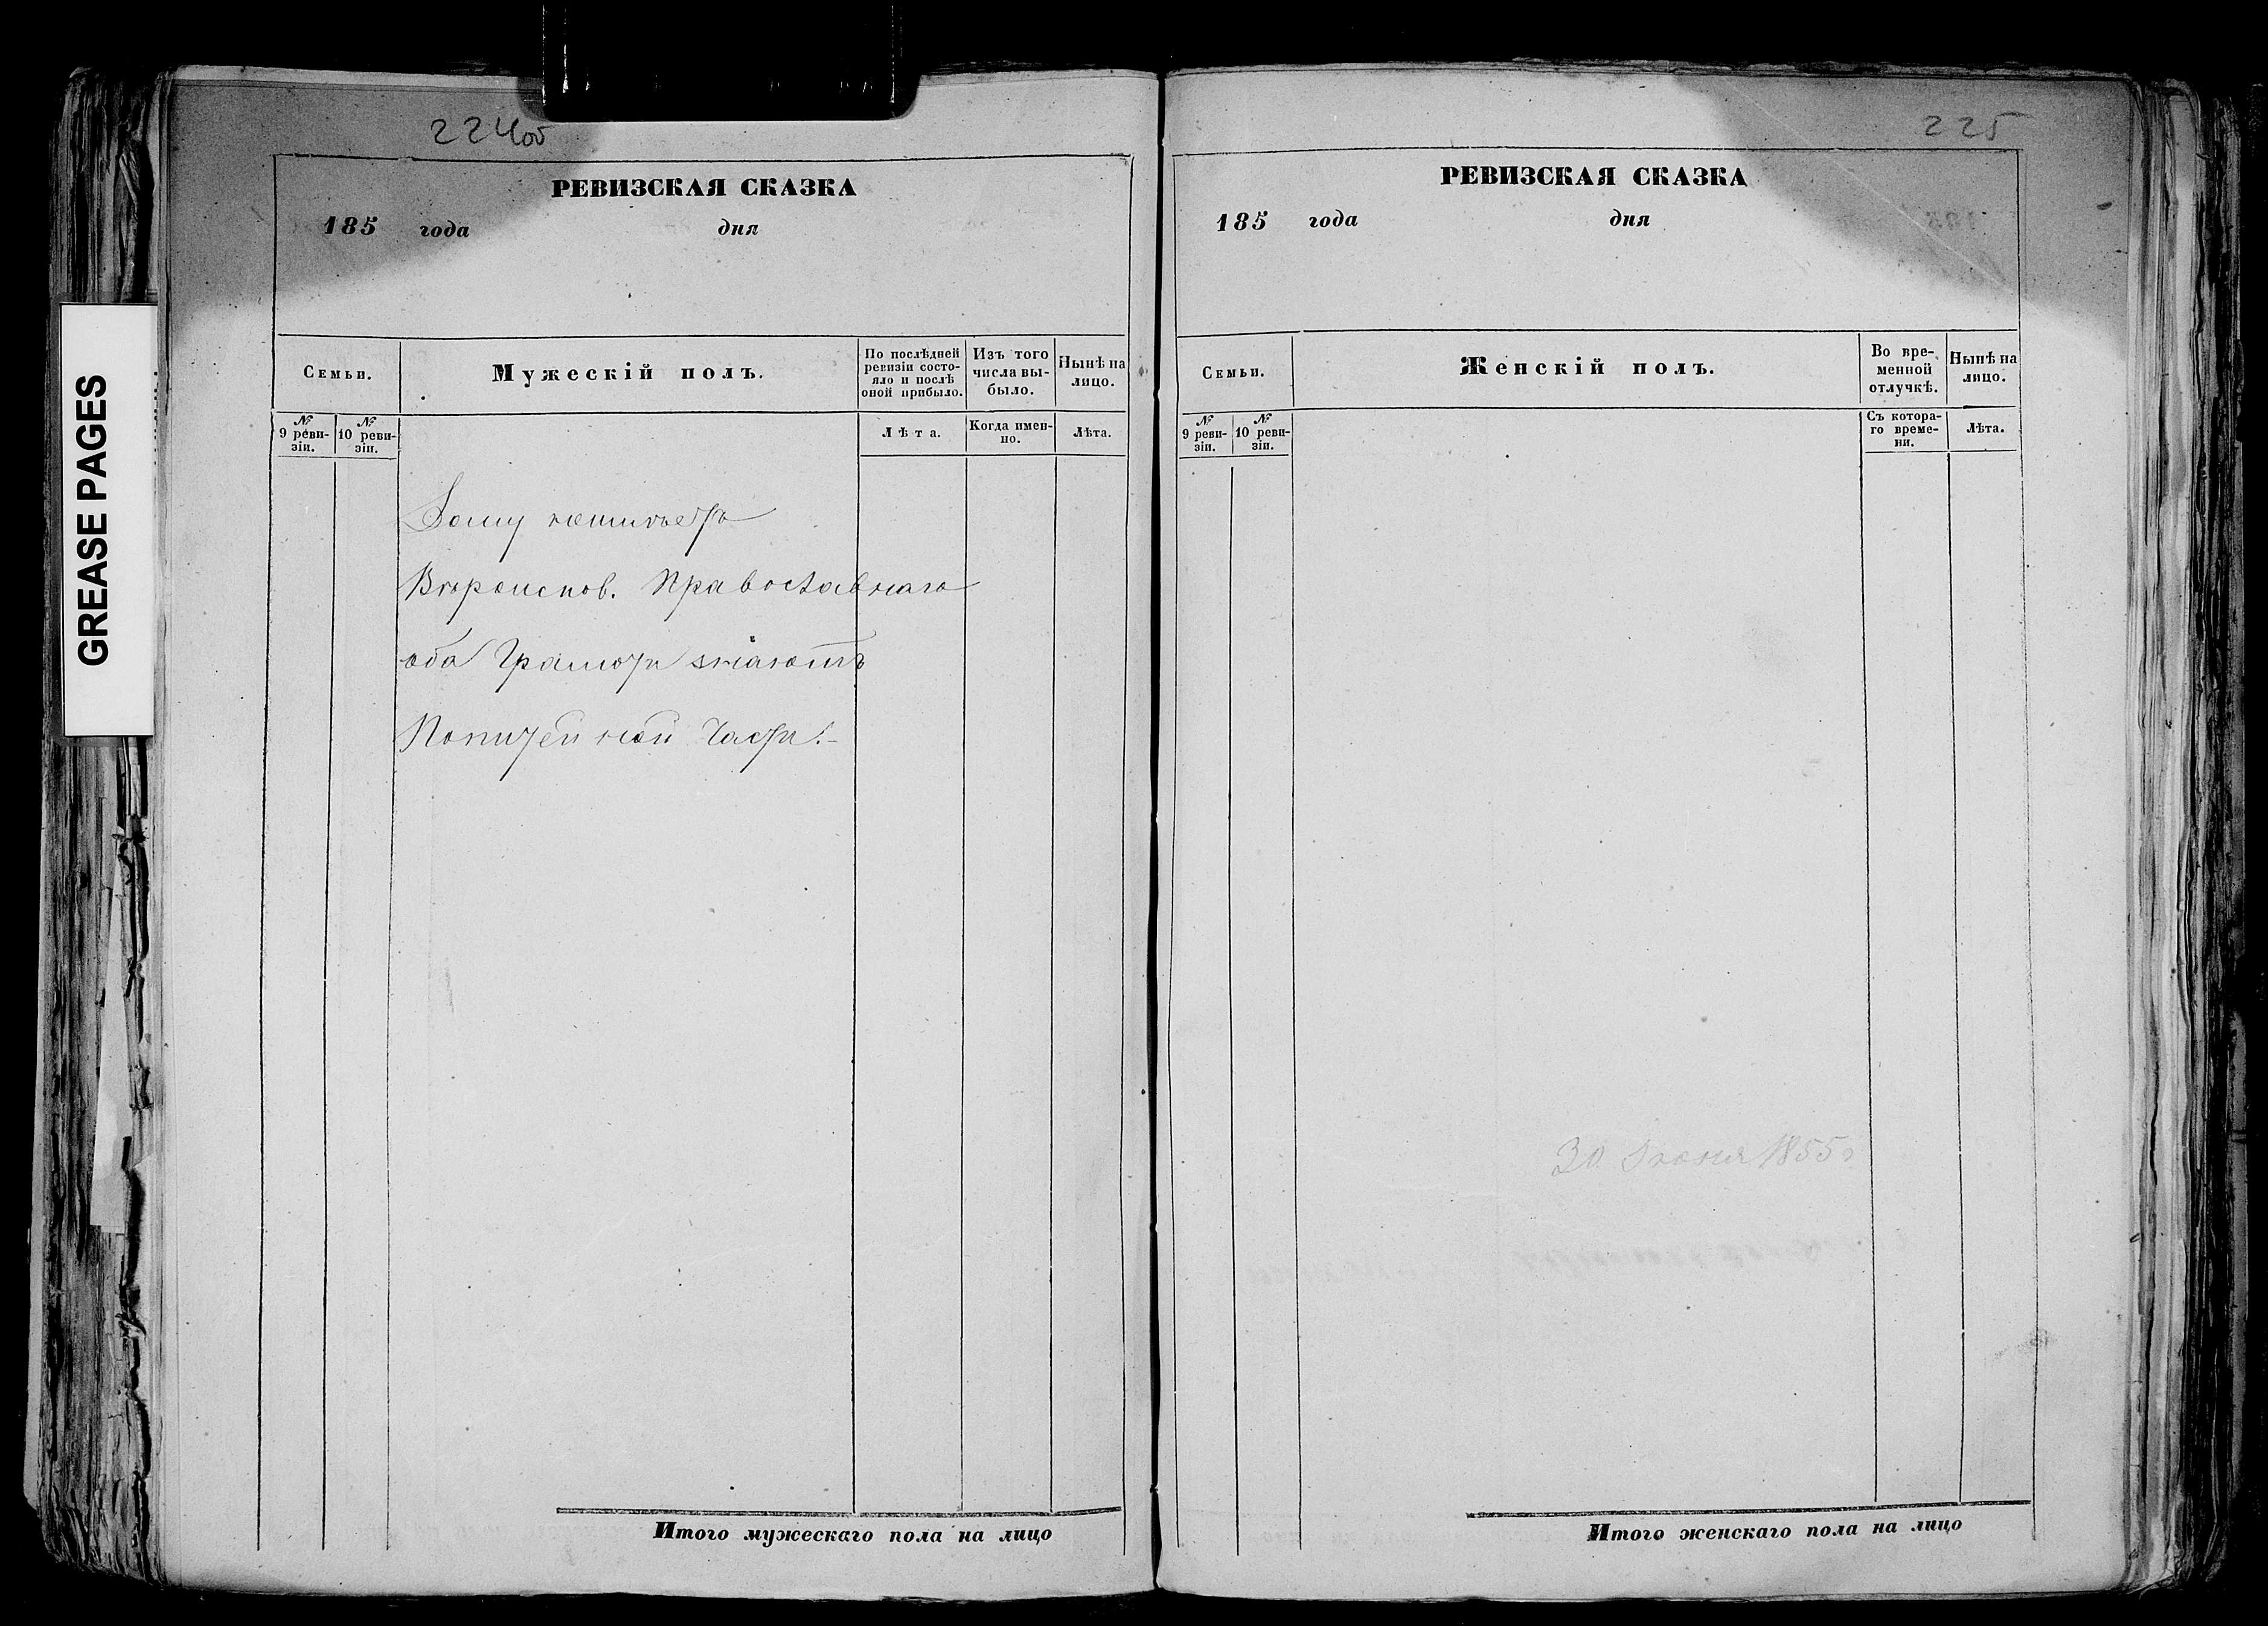 GREASE PAGES
224об
РЕВИЗСКАЯ СКАЗКА
185 года дня
Семьи.
Мужескій полъ.
По послѣдней ревизіи состояло и послѣ оной прибыло.
Изъ того числа выбыло.
Нынѣ на лицо.
№ 9 ревизіи.
№ 10 ревизіи.
Лѣта.
Когда именно.
Лѣта.
Дому неимѣетъ
Вѣроиспов. Православнаго
оба Грамоти знаютъ
Попичейной Части.
Итого мужескаго пола на лицо
225
РЕВИЗСКАЯ СКАЗКА
185 года дня
Семьи.
Женскій полъ.
Во временной отлучкѣ.
Нынѣ на лицо.
№ 9 ревизіи.
№ 10 ревизіи.
Съ котораго времени.
Лѣта.
30 Июня 1855
Итого женскаго пола на лицо